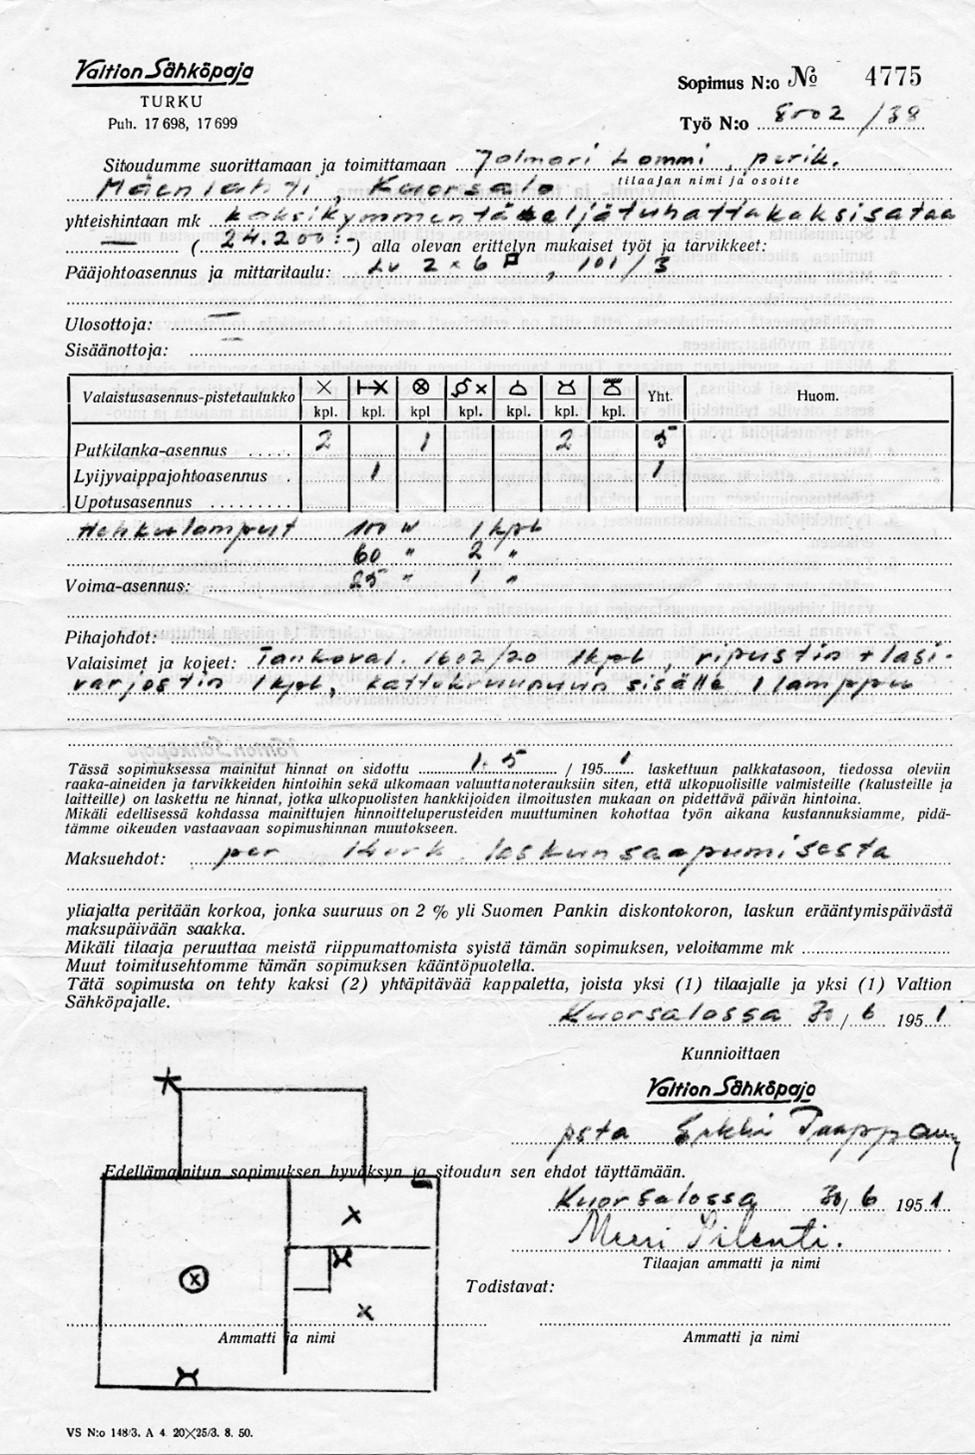 Valtion Sähköpaja
TURKU
Puh. 17 698, 17 699
Sopimus N:o № 4775
Työ N:o 8002 / 38
Sitoudumme suorittamaan ja toimittamaan Jalmari Lommi, perik.
tilaajan nimi ja osoite
Mäenlahti, Kuorsalo
yhteishintaan mk kaksikymmentäneljätuhattakaksisataa
— (24.200:-) alla olevan erittelyn mukaiset työt ja tarvikkeet:
Pääjohtoasennus ja mittaritaulu: Lv 2 x 6, 101/3
Ulosottoja: —
Sisäänottoja: —
Valaistusasennus-pistetaulukko kpl. kpl. kpl kpl. kpl. kpl. kpl. Yht. Huom.
Putkilanka-asennus 2 1 2 5
Lyijyvaippajohtoasennus 1 1
Upotusasennus
Hehkulamput 100 W 1 kpl
60 " 2 "
Voima-asennus: 25 " 1 "
Pihajohdot:
Valaisimet ja kojeet: Tankoval. 1602/20 1kpl, ripustin + lasi-
varjostin 1kpl, kattokruunuun sisälle 1 lamppu
Tässä sopimuksessa mainitut hinnat on sidottu 1. 5 / 195 1 laskettuun palkkatasoon, tiedossa oleviin
raaka-aineiden ja tarvikkeiden hintoihin sekä ulkomaan valuuttanoterauksiin siten, että ulkopuolisille valmisteille (kalusteille ja
laitteille) on laskettu ne hinnat, jotka ulkopuolisten hankkijoiden ilmoitusten mukaan on pidettävä päivän hintoina.
Mikäli edellisessä kohdassa mainittujen hinnoitteluperusteiden muuttuminen kohottaa työn aikana kustannuksiamme, pidä-
tämme oikeuden vastaavaan sopimushinnan muutokseen.
Maksuehdot: per 14 vrk. laskun saapumisesta
yliajalta peritään korkoa, jonka suuruus on 2 % yli Suomen Pankin diskontokoron, laskun erääntymispäivästä
maksupäivään saakka.
Mikäli tilaaja peruuttaa meistä riippumattomista syistä tämän sopimuksen, veloitamme mk
Muut toimitusehtomme tämän sopimuksen kääntöpuolella.
Tätä sopimusta on tehty kaksi (2) yhtäpitävää kappaletta, joista yksi (1) tilaajalle ja yksi (1) Valtion
Sähköpajalle.
Kuorsalossa 30/6 195 1
Kunnioittaen
Valtion Sähköpaja
psta Erkki
Edellämainitun sopimuksen hyväksyn ja sitoudun sen ehdot täyttämään.
Kuorsalossa 30/6 195 1
Meeri Pilenti.
Tilaajan ammatti ja nimi
Todistavat:
Ammatti ja nimi
Ammatti ja nimi
VS N:o 148/3. A 4. 20×25/3. 8. 50.